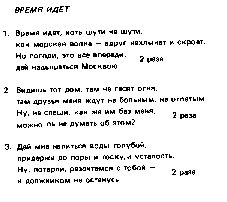 ВРЕМЯ ИДЕТ
1. Время идет, хоть шути не шути,
как морская волна – вдруг нахлынет и скроет.
Но погоди, это все впереди,
дай надышаться Москвою. 2 раза
2 Видишь тот дом, там не гасят огня,
там друзья меня ждут не больным, не отпетым
Ну, не спеши, как же им без меня, 2 раза
можно ль не думать об этом?
3. Дай мне напиться воды голубой,
придержи до поры и тоску, и усталость.
Ну, потерпи, разочтемся с тобой —
я должником не останусь 2 раза